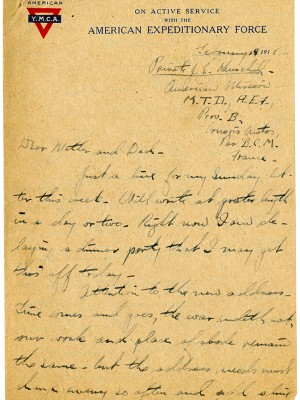 AMERICAN
Y.M.C.A.
ON ACTIVE SERVICE
WITH THE
AMERICAN EXPEDITIONARY FORCE
February 191
Private J. E.
American Mission
M.T.D., A.E.F.,
Prov. B,
Convois Autos,
Par B.C.M.
France.
Dear Mother and Dad—
Just a line for my Sunday let-
ter this week. Will write at greater length
in a day or two. Right now I am de-
laying a dinner party that I may get
this off today.
Attention to the new address.
Time comes and goes, the war
our work and place of abode remain
the same - but the address needs must
every so often and add